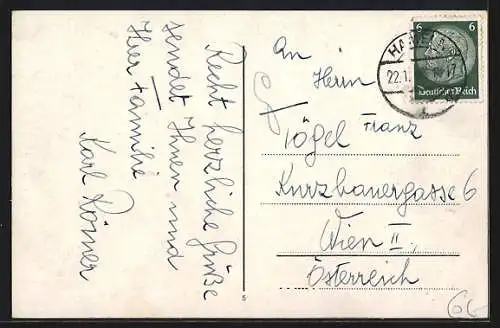 Recht herzliche Grüße
sendet Ihnen und
Ihrer Familie
Karl
An
Herrn
Franz
Kurzbauergasse 6
Wien II
Österreich
6 6
Deutsches Reich
22.1.
17
5